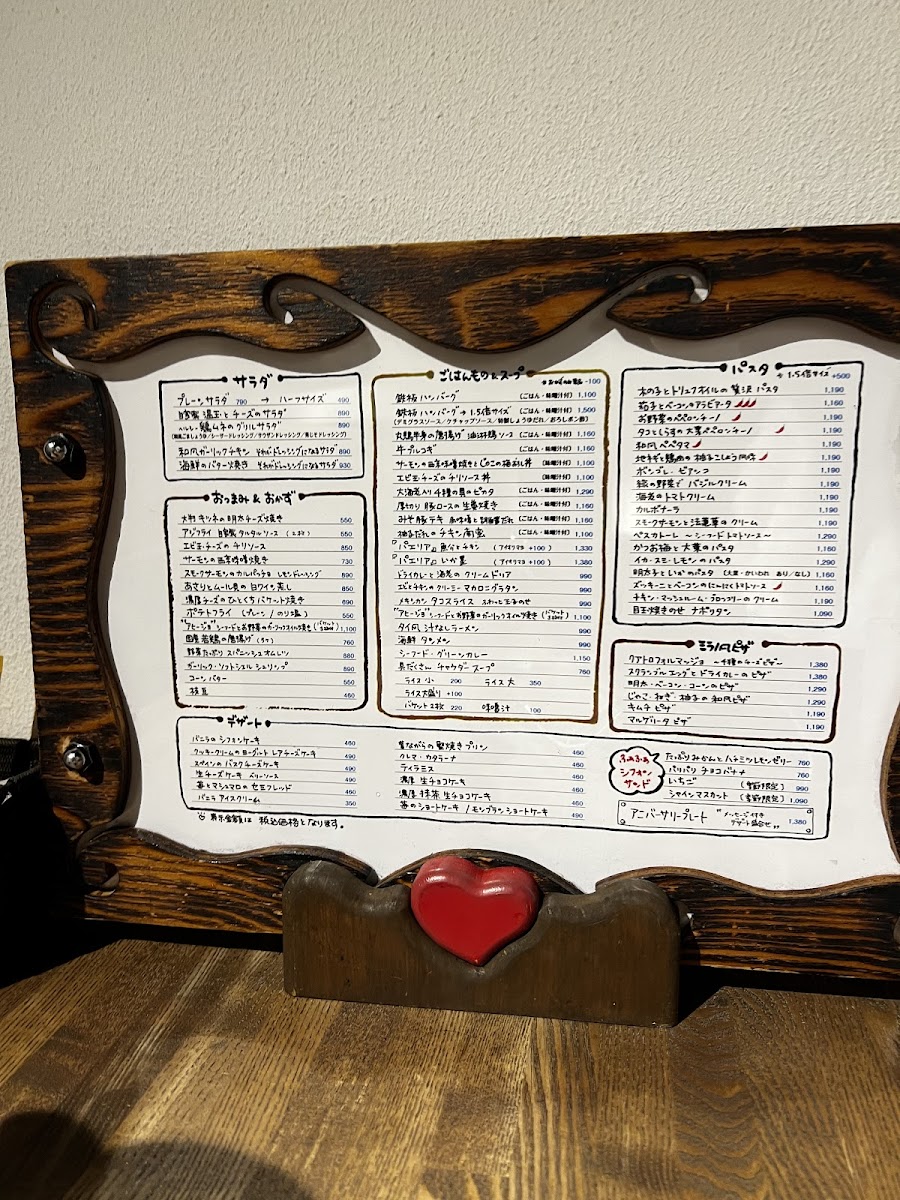 サラダ
プレーンサラダ 790 → ハーフサイズ 490
自家製 温玉とチーズのサラダ 890
ヘルシー 鶏ムネのグリルサラダ 890
和風ガーリックチキン それがドレッシングになるサラダ 890
海鮮のバター焼き それがドレッシングになるサラダ 930
おつまみ & おかず
大判キツネの明太チーズ焼き 550
アジフライ 自家製タルタルソース (2枚) 550
エビ玉チーズのチリソース 850
サーモンの西京味噌焼き 730
スモークサーモンのカルパッチョ レモンドレッシング 890
あさりとムール貝の白ワイン蒸し 850
濃厚チーズのひとくちバケット焼き 690
ポテトフライ (プレーン / のり塩) 550
"アヒージョ" シーフードとお野菜のガーリックオイル焼き (バケット2枚付) 1,100
国産 若鶏の唐揚げ (5ケ) 760
野菜たっぷり スパニッシュオムレツ 580
ガーリック・ソフトシェルシュリンプ 890
コーンバター 550
枝豆 460
ごはんもの & スープ
鉄板ハンバーグ (ごはん・味噌汁付) 1,100
鉄板ハンバーグ → 1.5倍サイズ (ごはん・味噌汁付) 1,500
(デミグラスソース/ケチャップソース/特製しょうゆだれ/おろしポン酢)
丸鶏半身の唐揚げ 油淋鶏ソース (ごはん・味噌汁付) 1,160
牛プルコギ (ごはん・味噌汁付) 1,160
サーモンの西京味噌焼きときのこの梅おろし丼 (味噌汁付) 1,100
エビ玉チーズのチリソース丼 (味噌汁付) 1,100
大海老入り 4種の具のピカタ (ごはん・味噌汁付) 1,290
厚切り 豚ロースの生姜焼き (ごはん・味噌汁付) 1,160
みそ豚テキ (ごはん・味噌汁付) 1,160
柚子だれのチキン南蛮 (ごはん・味噌汁付) 1,100
『パエリア』魚介とチキン (アイオリマヨ +100) 1,330
『パエリア』いか墨 (アイオリマヨ +100) 1,380
ドライカレーと海老のクリームドリア 990
エビとチキンのクリーミーマカロニグラタン 990
メキシカン タコスライス ふわっと玉子のせ 990
"アヒージョ" シーフードとお野菜のガーリックオイル焼き (バケット2枚付) 1,100
タイ風 汁なしラーメン 990
海鮮 タンメン 990
シーフード・グリーンカレー 1,150
具だくさん チャウダースープ 760
ライス小 200 ライス大 350
ライス大盛り +100
バケット2枚 220 味噌汁 100
パスタ
→ 1.5倍サイズ +500
木の子とトリュフオイルの贅沢パスタ 1,190
茄子とベーコンのアラビアータ 1,190
お野菜のペペロンチーノ 1,190
タコとしらすの大葉ペペロンチーノ 1,190
和風ペペタマ 1,190
地ネギと鶏肉の柚子こしょう風味 1,190
ボンゴレ・ビアンコ 1,190
緑の野菜でバジルクリーム 1,190
海老のトマトクリーム 1,190
カルボナーラ 1,190
スモークサーモンと法蓮草のクリーム 1,190
ペスカトーレ ～シーフードトマトソース～ 1,290
かつお梅と大葉のパスタ 1,160
イカ・スミ・レモンのパスタ 1,290
明太子といかのパスタ (大葉・かいわれ あり/なし) 1,160
ズッキーニとベーコンのにんにくトマトソース 1,160
チキン・マッシュルーム・ブロッコリーのクリーム 1,190
目玉焼きのせ ナポリタン 1,090
ミラノ風ピザ
クアトロフォルマッジョ ～4種のチーズピザ～ 1,380
スクランブルエッグとドライカレーのピザ 1,380
明太・ベーコン・コーンのピザ 1,290
じゃこ・ねぎ・柚子の和風ピザ 1,290
キムチピザ 1,190
マルゲリータピザ 1,190
デザート
バニラのシフォンケーキ 460
クッキークリームのヨーグルトレアチーズケーキ 490
スペインのバスクチーズケーキ 490
生チーズケーキ ベリーソース 490
苺とマシュマロのセミフレッド 490
バニラアイスクリーム 350
昔ながらの堅焼きプリン 460
クレマ・カタラーナ 460
ティラミス 460
濃厚 生チョコケーキ 460
濃厚 抹茶 生チョコケーキ 460
苺のショートケーキ / モンブランショートケーキ 490
ふぁふぁシフォンサンド
たっぷりみかんとハチミツレモンゼリー 760
パリパリチョコバナナ 760
いちご (季節限定) 990
シャインマスカット (季節限定) 1,090
アニバーサリープレート "メッセージ付き デザート盛合せ" 1,380
表示金額は 税込価格となります。